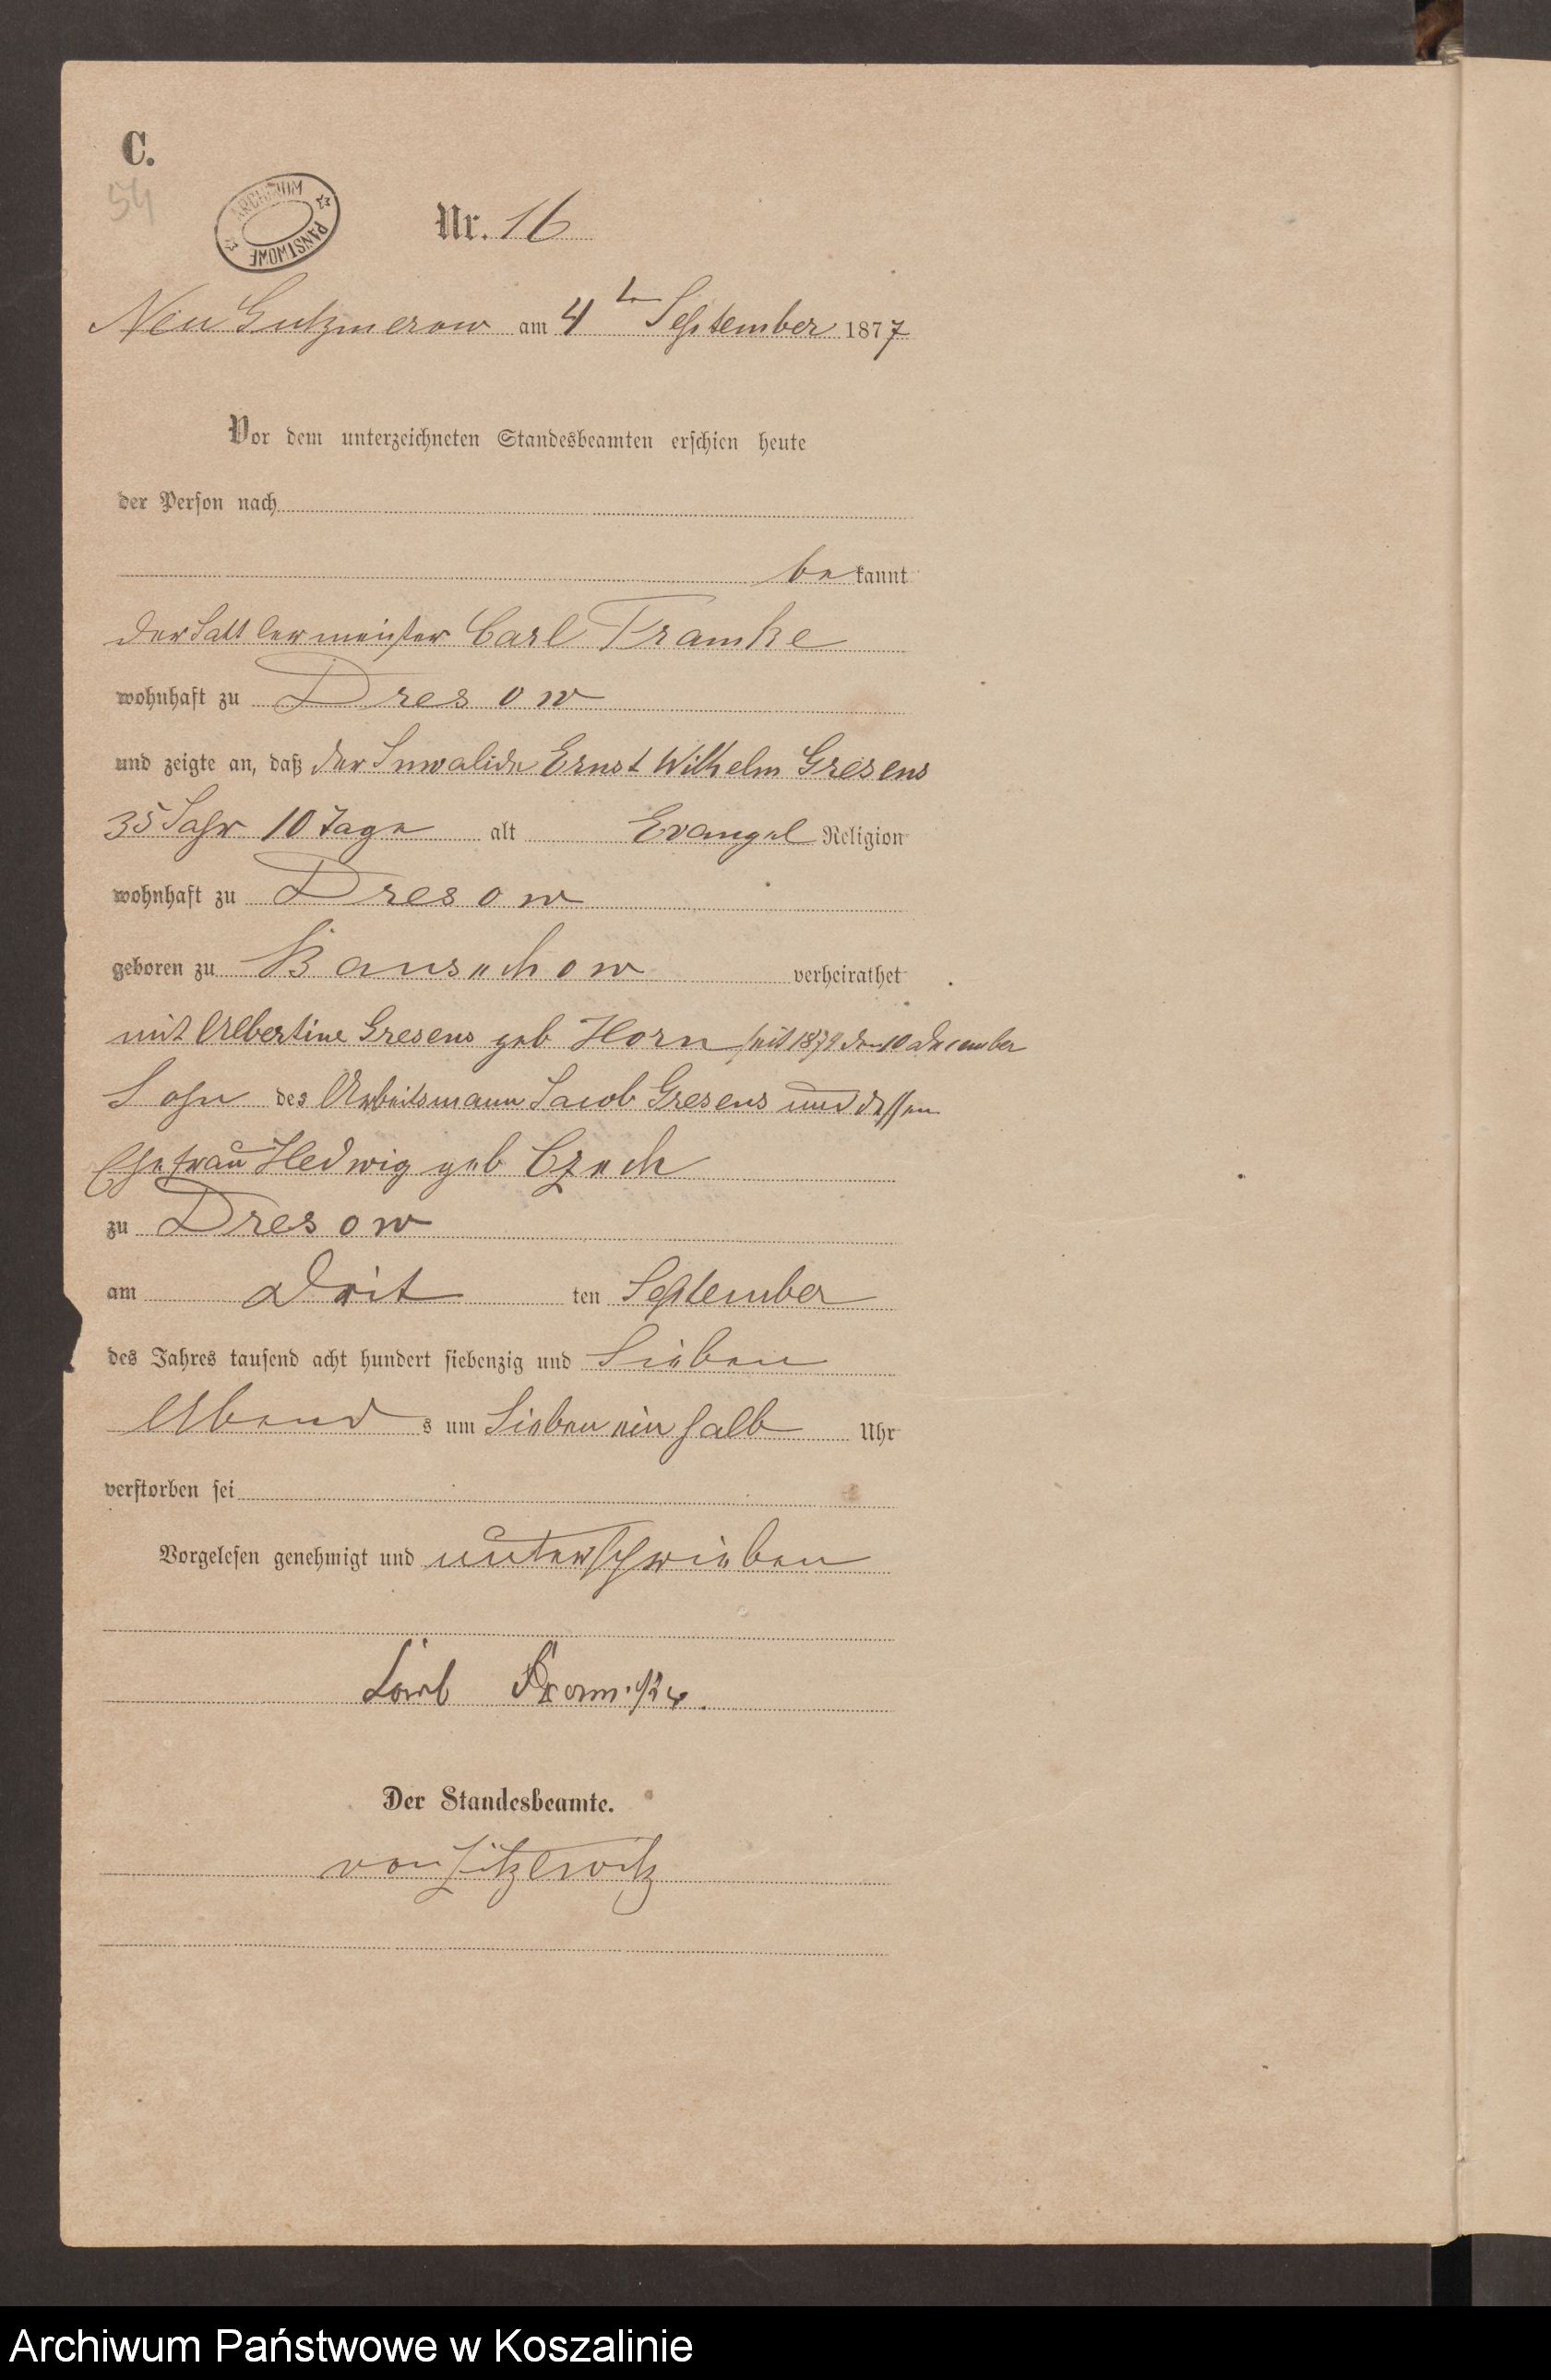 C.
54
ARCHIWUM PAŃSTWOWE
Nr. 16
Neu Gutzmerow am 4ten September 1877
Vor dem unterzeichneten Standesbeamten erschien heute
der Person nach
bekannt
der Sattlermeister Carl Framke
wohnhaft zu Dresow
und zeigte an, daß der Invalide Ernst Wilhelm Gresens
35 Jahr 10 Tage alt Evangel Religion
wohnhaft zu Dresow
geboren zu verheirathet
mit Albertine Gresens geb Horn seit den 10 December
Sohn des Arbeitsmann Jacob Gresens und dessen
Ehefrau Hedwig geb Czech
zu Dresow
am Drit ten September
des Jahres tausend acht hundert siebenzig und Sieben
Abend s um Sieben ein halb Uhr
verstorben sei
Vorgelesen genehmigt und unterschrieben
Der Standesbeamte.
von Zitzewitz
Archiwum Państwowe w Koszalinie